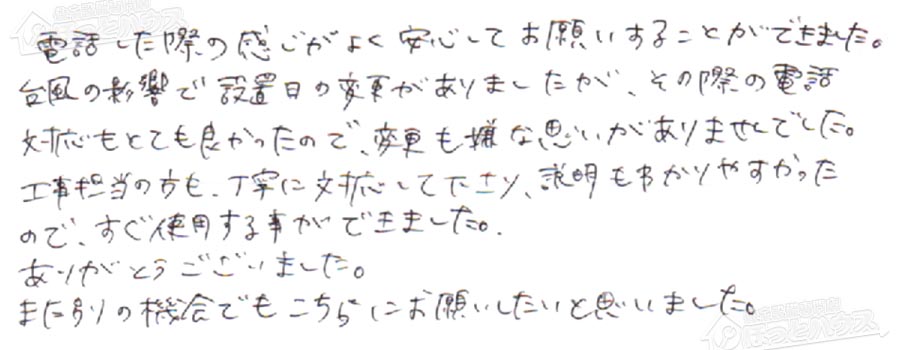 電話した際の感じがよく安心してお願いすることができました。
台風の影響で設置日の変更がありましたが、その際の電話
対応もとても良かったので、変更も嫌な思いがありませんでした。
工事担当の方も、丁寧に対応して下さり、説明もわかりやすかった
ので、すぐ使用する事ができました。
ありがとうございました。
また別の機会でもこちらにお願いしたいと思いました。
ほっとハウス
ほっとハウス